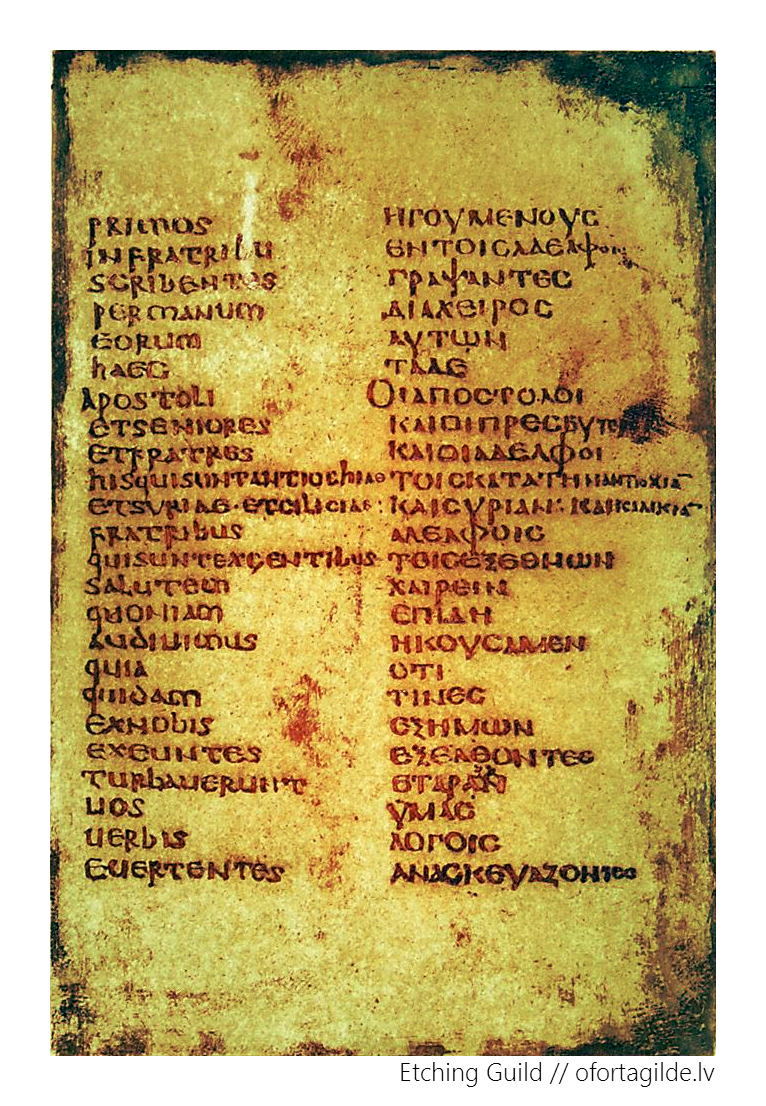 PRIMOS
INFRATRIBU
SCRIBENTES
PERMANUM
EORUM
hAEC
APOSTOLI
ETSENIORES
ETFRATRES
hISQUISUNTANTIOChIAE
ETSYRIAE·ETCILICIAE:
FRATRIBUS
QUISUNTEXGENTIBUS
SALUTEM
QUONIAM
AUDIUIMUS
QUIA
QUIDAM
EXNOBIS
EXEUNTES
TURBAUERUNT
UOS
UERBIS
EUERTENTES
ΗΓΟΥΜΕΝΟΥϹ
ΕΝΤΟΙϹΑΔΕΛΦΟΙϹ
ΓΡΑΨΑΝΤΕϹ
ΔΙΑΧΕΙΡΟϹ
ΑΥΤΩΝ
ΤΑΔΕ
ΟΙΑΠΟϹΤΟΛΟΙ
ΚΑΙΟΙΠΡΕϹΒΥΤΕ
ΚΑΙΟΙΑΔΕΛΦΟΙ
ΤΟΙϹΚΑΤΑΤΗΝΑΝΤΙΟΧΙΑ̅
ΚΑΙϹΥΡΙΑΝ: ΚΑΙΚΙΛΙΚΙΑ̅
ΑΔΕΛΦΟΙϹ
ΤΟΙϹΕΞΕΘΝΩΝ
ΧΑΙΡΕΙΝ
ΕΠΙΔΗ
ΗΚΟΥϹΑΜΕΝ
ΟΤΙ
ΤΙΝΕϹ
ΕΞΗΜΩΝ
ΕΞΕΛΘΟΝΤΕϹ
ΕΤΑΡΑΞΑΝ
ΥΜΑϹ
ΛΟΓΟΙϹ
ΑΝΑϹΚΕΥΑΖΟΝΤΕϹ
Etching Guild // ofortagilde.lv